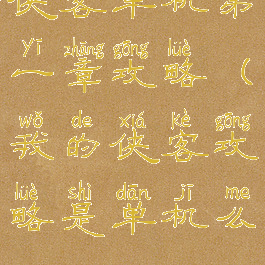 侠客单机第
yī zhāng gōng lüè
一章攻略(
wǒ de xiá kè gōng
我的侠客攻
lüè shì dān jī me
略是单机么